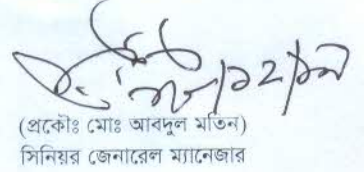 (প্রকৌঃ মোঃ আবদুল মতিন)
সিনিয়র জেনারেল ম্যানেজার